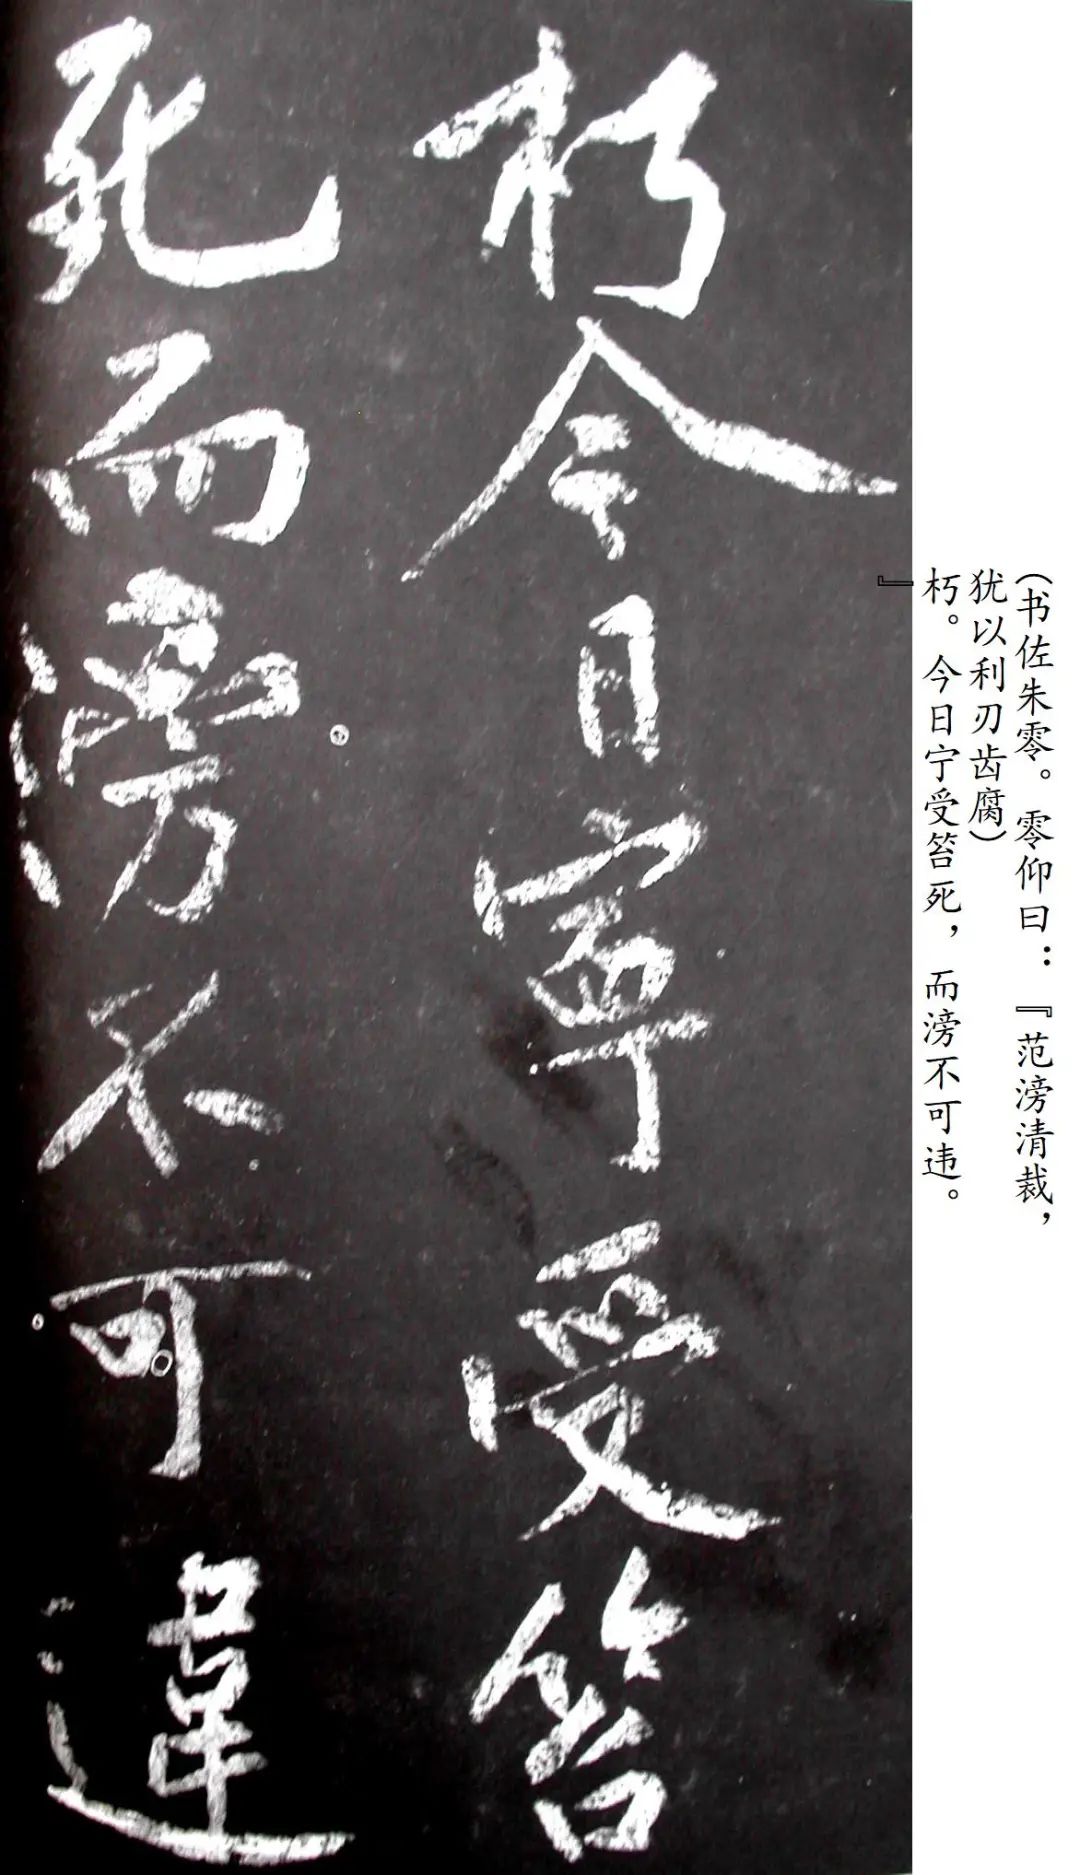 （书佐朱零。零仰曰：『范滂清裁，
犹以利刃齿腐）
朽。今日宁受笞死，而滂不可违。
』
朽今日寧受笞
死而滂不可違